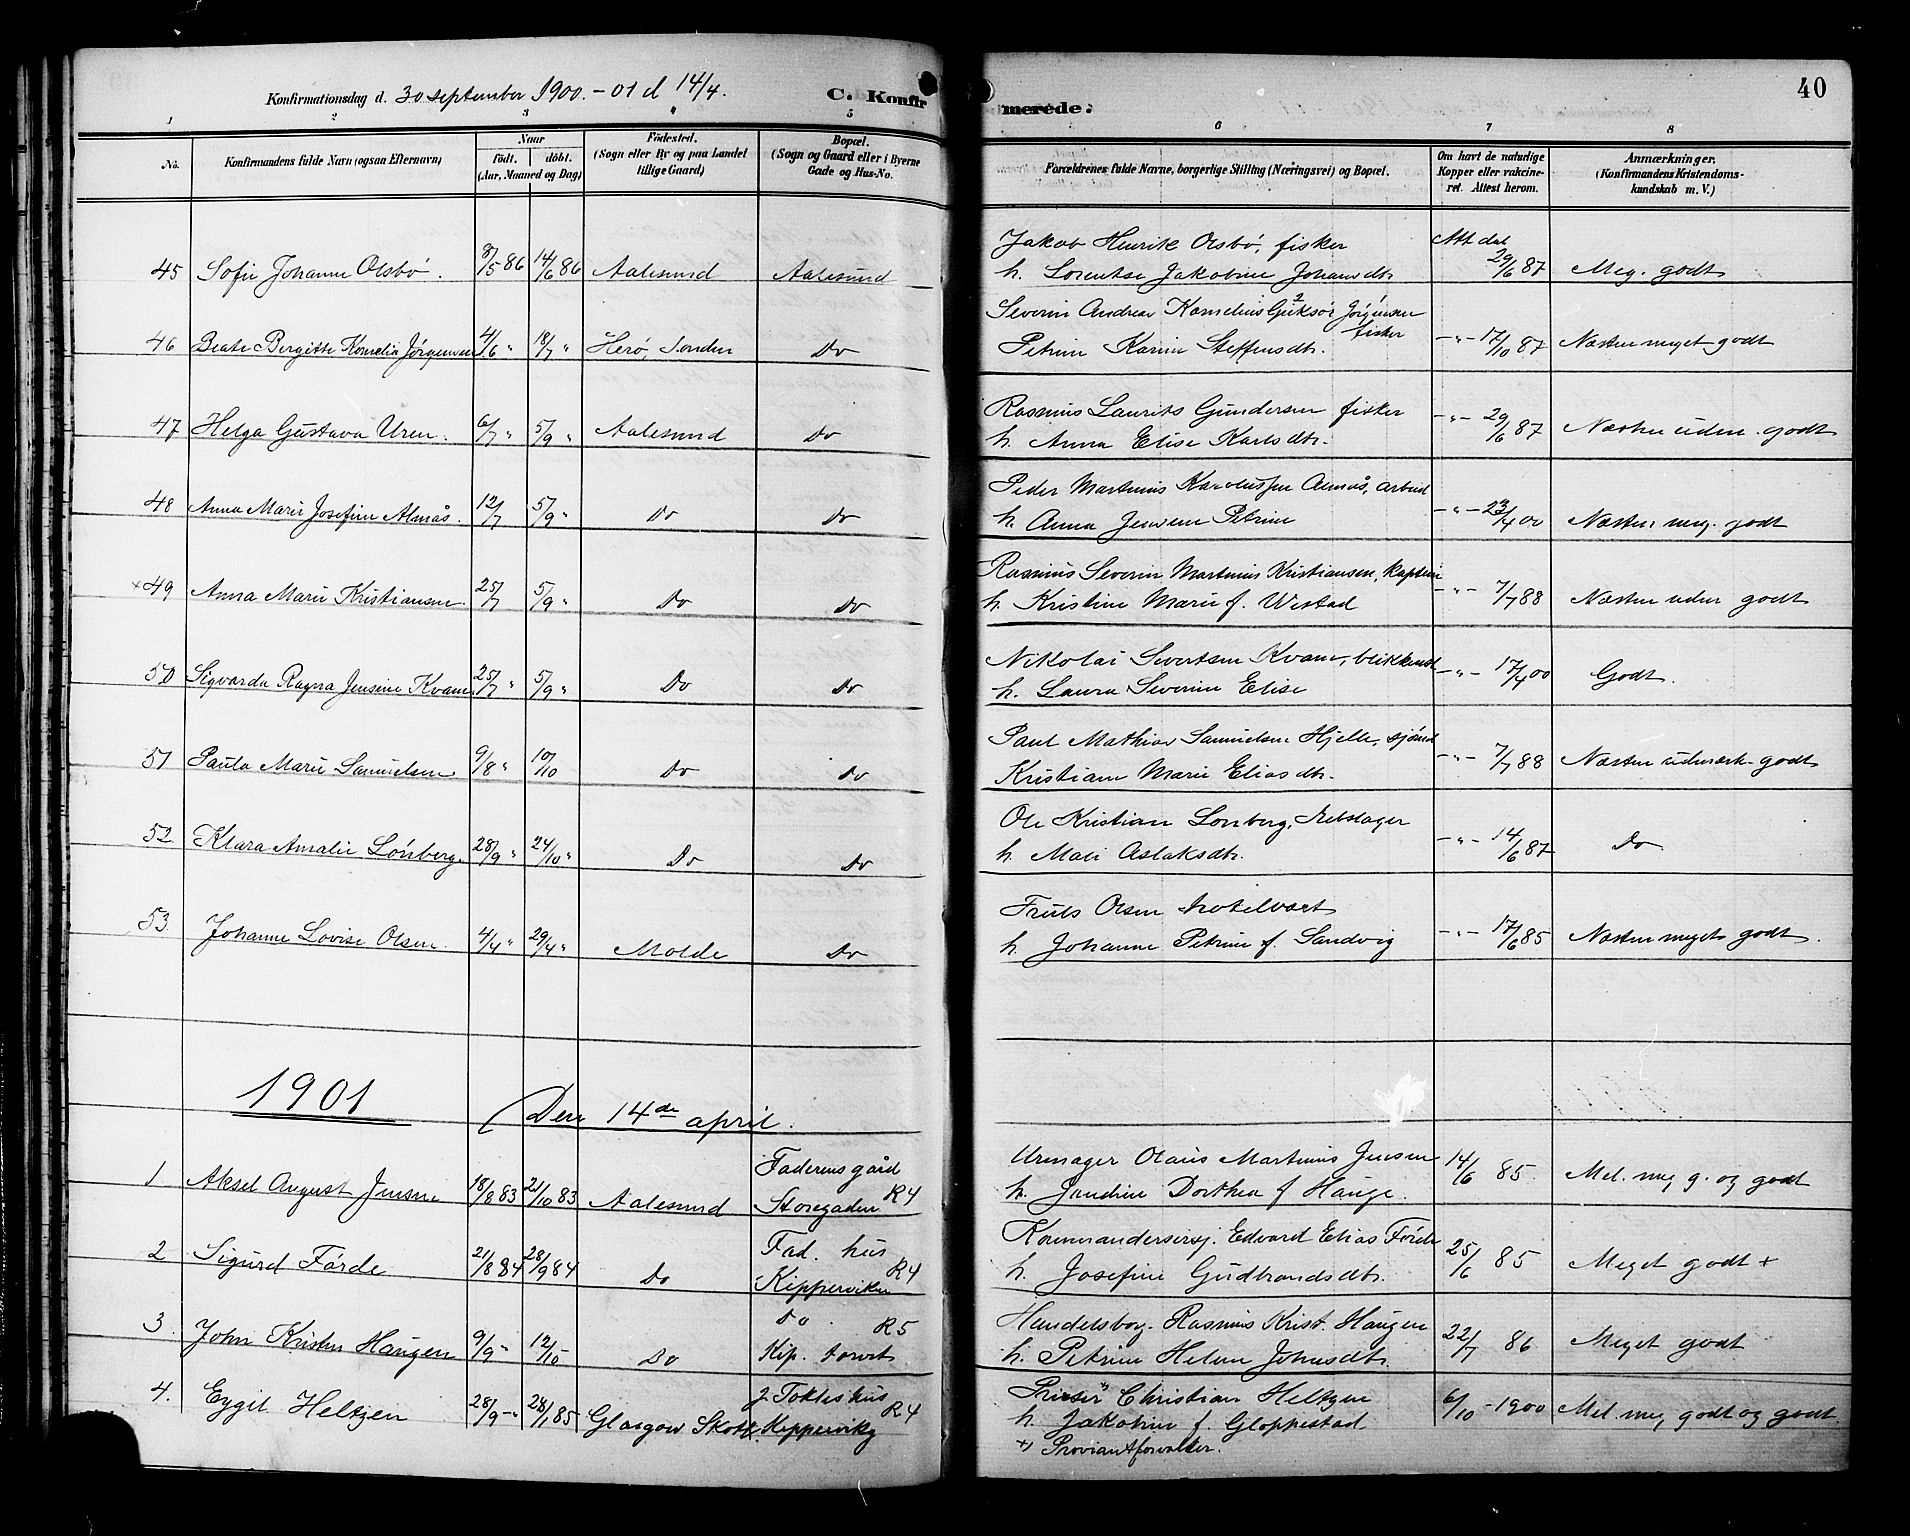 Konfirmationsdag d. 30 september 1900. - 01 d 14/4.
C. Konfirmerede.
40
1 2 3 4 5 6 7 8
No.
Konfirmandens fulde Navn (ogsaa Efternavn)
Naar
födt. döbt.
(Aar, Maaned og Dag)
Födested.
(Sogn eller By og paa Landet tillige Gaard)
Bopæl.
(Sogn og Gaard eller i Byerne Gade og Hus-No.
Forældrenes fulde Navne, borgerlige Stilling (Næringsvei) og Bopæl.
Om havt de naturlige Kopper eller vakcineret. Attest herom.
Anmærkninger.
(Konfirmandens Kristendomskundskab m. V.)
45 Sofie Johanne Olsbö. 8/5 86 14/6 86 Aalesund Aalesund Jakob Henrik Olsbö, fisker Att dat 29/6 87 Meg. godt
h. Lorentse Jakobine Johansdtr
46 Beate Bergitte Kornelia Jørgensen 4/6 " 18/7 " Herö, Sönden Do Severin Andreas Kornelius Jörgensen fisker -"- 17/10 87 Næsten meget godt
Petrine Karine Steffensdtr.
47 Helga Gustava Uren. 6/7 " 5/9 " Aalesund Do Rasmus Laurits Gundersen fisker -"- 29/6 87 Næsten uden. godt
h. Anna Elise Karlsdtr.
48 Anna Marie Josefine Almås. 12/7 5/9 " Do Do Peder Martinus Karolussen Almås, arbeid -"- 23/4 00 Næsten meg. godt
h. Anna Jensine Petrine
×49 Anna Marie Kristiansen. 25/7 5/9 " Do Do Rasmus Severin Martinus Kristiansen, kaptein -"- 7/7 88 Næsten uden godt
h. Kristine Marie f. Westad
50 Sigvarda Ragna Jensine Kvam 25/7 " 5/9 " Do Do Nikolai Sivertsen Kvam, blikkensl -"- 17/4 00 Godt.
h. Laura Severine Elise
51 Paula Marie Samuelsen 9/8 " 10/10 Do Do Paul Mathias Samuelsen Hjelle, sjömd -"- 7/7 88 Næsten udmærk- godt
Kristiane Marie Eliasdtr.
52 Klara Amalie Lönberg. 28/9 " 24/10 " Do Do Ole Kristian Lonberg, Rebslager -"- 14/6 87 Do
h. Mali Aslaksdtr.
53. Johanne Lovise Olsen. 4/4 " 29/4 " Molde Do Truls Olsen hotelvært -"- 17/6 85 Næsten meget godt.
h. Johanne Petrine f. Sandvig
1901
Den 14de april.
1 Aksel August Jensen 18/8 83 21/10 83 Aalesund Faderens gård Storegaden R4 Urmager Olaus Martinus Jensen 14/6 85. Mel. meg g. og godt
h. Jandine Dorthea f Hauge.
2 Sigurd Förde 21/8 84 28/9 84 Do Fad. hus Kipperviken R4 Kommandersirsj. Edvard Elias Förde 25/6 85 Meget godt +
h. Josefine Gudbrandsdtr.
3. John Kristen Haugen 9/9 - 12/10 - Do Do. Kip. torvet R5 Handelsborg. Rasmus Krist. Haugen 22/7 86 Meget godt
h. Petrine Helene Johnsdtr.
4. Eygil Heltzen 28/9 - 28/1 85 Glasgow Skotl. J. Toktes hus Kippervikg R4 Christian Heltzen 6/10 - 1900 Mel. meg godt og godt
h. Jakobine f. Gloppestad
+) Proviantforvalter.